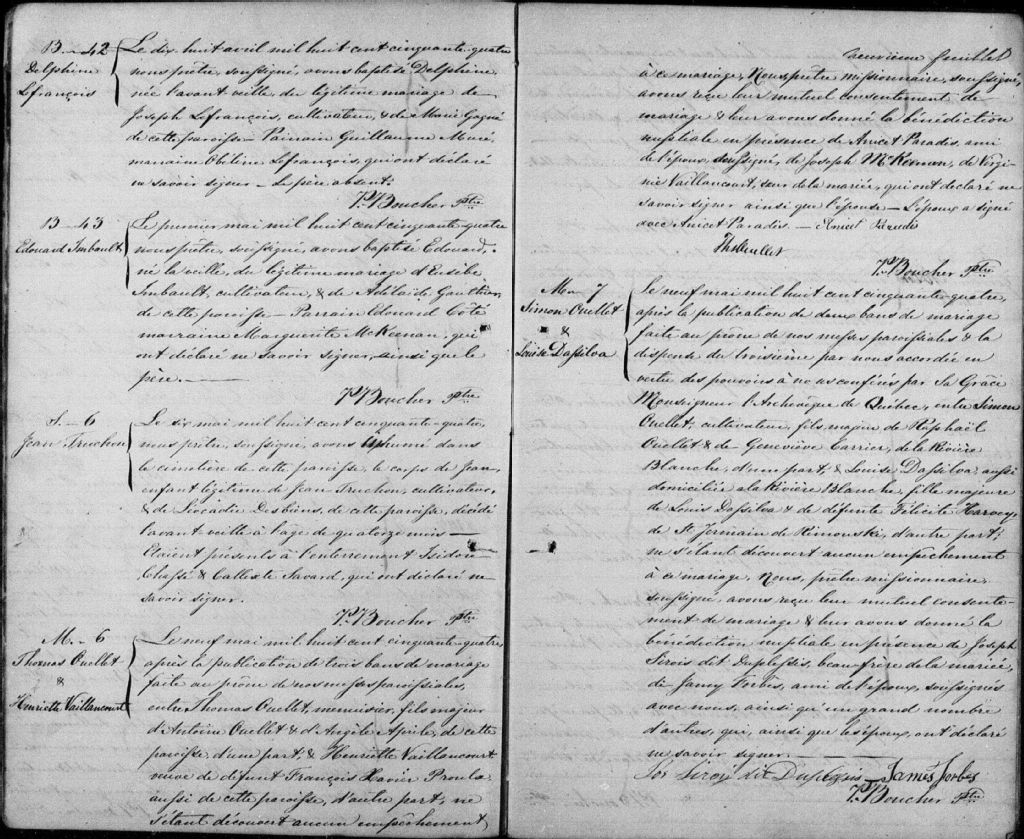 B.-42
Delphine
Lefrançois
Le dix huit avril mil huit cent cinquante-quatre
nous prêtre, soussigné, avons baptisé Delphine,
née l'avant veille, du légitime mariage de
Joseph Lefrançois, cultivateur, & de Marie Gagné
de cette paroisse - Parrain Guillaume Marié,
marraine Obéline Lefrançois, qui ont déclaré
ne savoir signer - Le père absent.
P. Boucher Ptre
B - 43
Edouard Imbault
Le premier mai mil huit cent cinquante-quatre
nous prêtre, soussigné, avons baptisé Edouard,
né la veille, du légitime mariage d'Eusèbe
Imbault, cultivateur, & de Adélaide Gauthier,
de cette paroisse - Parrain Edouard Côté
marraine Marguerite McKeenan, qui
ont déclaré ne savoir signer, ainsi que le
père. -
P. Boucher Ptre
S. - 6
Jean Truchon
Le six mai mil huit cent cinquante-quatre,
nous prêtre, soussigné, avons inhumé dans
le cimetière de cette paroisse, le corps de Jean,
enfant légitime de Jean Truchon, cultivateur,
& de Leocadie Desbiens, de cette paroisse, décédé
l'avant veille à l'age de quatorze mois -
Etaient présents à l'enterrement Isidore
Chassé & Callixte Savard, qui ont déclaré ne
savoir signer.
P. Boucher Ptre
M. - 6
Thomas Ouellet
&
Henriette Vaillancourt
Le neuf mai mil huit cent cinquante-quatre,
après la publication de trois bans de mariage
faite au prône de nos messes paroissiales,
entre Thomas Ouellet, menuisier, fils majeur
d'Antoine Ouellet & d'Angèle Aprile, de cette
paroisse, d'une part, & Henriette Vaillancourt
veuve de défunt François Xavier Proulx
aussi de cette paroisse, d'autre part; ne
s'étant découvert aucun empêchement,
neuvième feuillet
à ce mariage, Nous prêtre missionnaire, soussigné,
avons reçu leur mutuel consentement de
mariage & leur avons donné la bénédiction
nuptiale en présence de Anicet Paradis, ami
de l'époux, soussigné, de Joseph McKeenan, de Virgi-
nie Vaillancourt, sœur de la mariée, qui ont déclaré ne
savoir signer ainsi que l'épouse - L'époux a signé
avec Anicet Paradis. - Anicet Paradis
Ths Ouellet
P. Boucher Ptre
M. - 7
Simon Ouellet
&
Louise Dassilva
Le neuf mai mil huit cent cinquante-quatre,
après la publication de deux bans de mariage
faite au prône de nos messes paroissiales & la
dispense du troisième par nous accordée en
vertu des pouvoirs à nous confiés par Sa Grâce
Monseigneur l'Archevêque de Québec, entre Simon
Ouellet, cultivateur, fils majeur de Raphaël
Ouellet & de Geneviève Carrier, de la Rivière
Blanche, d'une part, & Louise Dassilva, aussi
domiciliée à la Rivière Blanche, fille majeure
de Louis Dassilva & de défunte Félicité Harvey
de St Germain de Rimouski, d'autre part;
ne s'étant découvert aucun empêchement
à ce mariage, Nous, prêtre missionnaire,
soussigné, avons reçu leur mutuel consente-
ment de mariage & leur avons donné la
bénédiction nuptiale en présence de Joseph
Sirois dit Duplessis, beau frère de la mariée,
de Jamy Forbes, ami de l'époux, soussignés
avec nous, ainsi qu'un grand nombre
d'autres, qui, ainsi que les époux, ont déclaré
ne savoir signer.
Jos Siroy dit Duplessis - James Forbes
P. Boucher Ptre